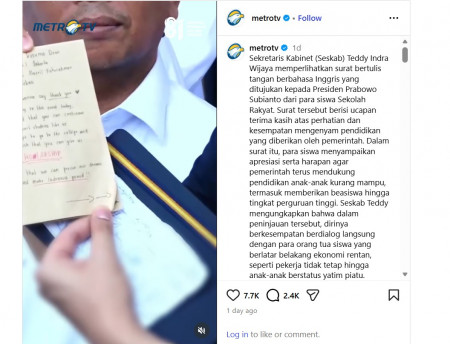 METROTV
thank you
metrotv • Follow
metrotv 1d
Sekretaris Kabinet (Seskab) Teddy Indra
Wijaya memperlihatkan surat bertulis
tangan berbahasa Inggris yang
ditujukan kepada Presiden Prabowo
Subianto dari para siswa Sekolah
Rakyat. Surat tersebut berisi ucapan
terima kasih atas perhatian dan
kesempatan mengenyam pendidikan
yang diberikan oleh pemerintah. Dalam
surat itu, para siswa menyampaikan
apresiasi serta harapan agar
pemerintah terus mendukung
pendidikan anak-anak kurang mampu,
termasuk memberikan beasiswa hingga
tingkat perguruan tinggi. Seskab Teddy
Mengungkapkan bahwa dalam
peninjauan tersebut, dirinya
berkesempatan berdialog langsung
dengan para orang tua siswa yang
berlatar belakang ekonomi rentan,
seperti pekerja tidak tetap hingga
anak-anak berstatus yatim piatu.
7.7K 2.4K
1 day ago
Log in to like or comment.